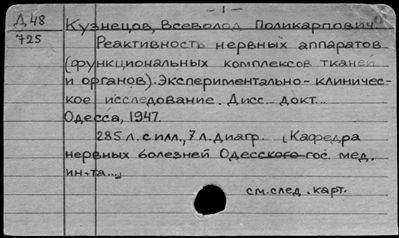 - 1 -
Д.48 Кузнецов, Всеволод Поликарпович
725 Реактивность нервных аппаратов
(функциональных комплексов тканей
и органов). Экспериментально-клиничес-
кое исследование. Дисс... докт...
Одесса, 1947.
285 л. с илл., 7 л. диагр. (Кафедра
нервных болезней Одесского гос. мед.
ин-та...)
см. след. карт.